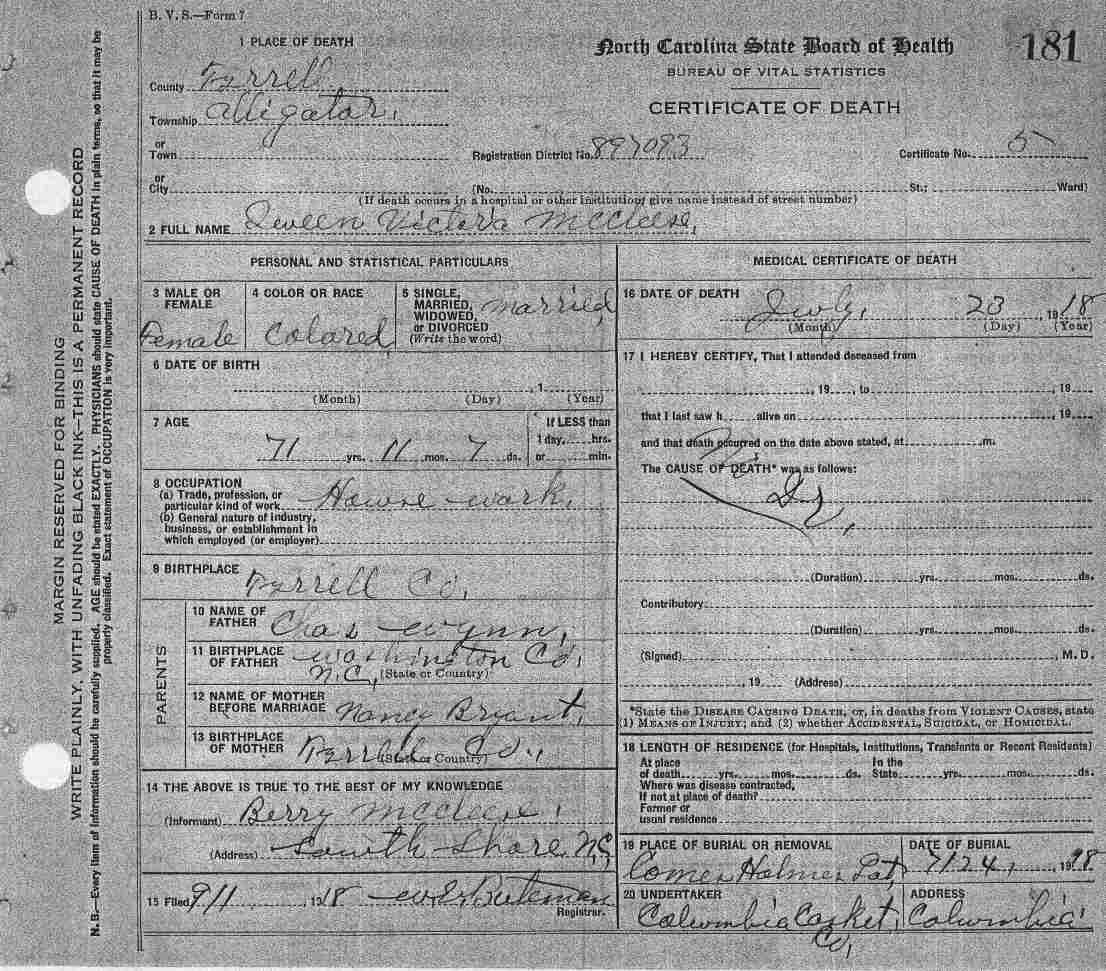 B. V. S.—Form 7
North Carolina State Board of Health
181
BUREAU OF VITAL STATISTICS
CERTIFICATE OF DEATH
1 PLACE OF DEATH
County Tyrrell
Township Alligator,
or
Town
Registration District No. 897093
Certificate No. 5
or
City (No. St.; Ward)
(If death occurs in a hospital or other institution, give name instead of street number)
2 FULL NAME Queen Victoria McCleese,
PERSONAL AND STATISTICAL PARTICULARS
3 MALE OR FEMALE
Female
4 COLOR OR RACE
Colored,
5 SINGLE, MARRIED, WIDOWED, or DIVORCED (Write the word)
married,
6 DATE OF BIRTH
, 1
(Month) (Day) (Year)
7 AGE
71 yrs. 11 mos. 7 ds.
If LESS than
1 day, hrs.
or min.
8 OCCUPATION
(a) Trade, profession, or
particular kind of work House work,
(b) General nature of industry,
business, or establishment in
which employed (or employer)
9 BIRTHPLACE Tyrrell Co,
PARENTS
10 NAME OF FATHER Chas Wynn,
11 BIRTHPLACE OF FATHER Washington Co,
N.C, (State or Country)
12 NAME OF MOTHER BEFORE MARRIAGE Nancy Bryant,
13 BIRTHPLACE OF MOTHER Tyrrell Co.,
(State or Country)
14 THE ABOVE IS TRUE TO THE BEST OF MY KNOWLEDGE
(Informant) Berry McCleese,
(Address) South Shore N.C,
15 Filed 9/1, 1918 Bateman
Registrar.
MEDICAL CERTIFICATE OF DEATH
16 DATE OF DEATH July, 23, 1918
(Month) (Day) (Year)
17 I HEREBY CERTIFY, That I attended deceased from
, 19 , to , 19
that I last saw h alive on , 19
and that death occurred on the date above stated, at m.
The CAUSE OF DEATH* was as follows:
No
Dr,
(Duration) yrs. mos. ds.
Contributory
(Duration) yrs. mos. ds.
(Signed) , M. D.
, 19 (Address)
*State the DISEASE CAUSING DEATH, or, in deaths from VIOLENT CAUSES, state
(1) MEANS OF INJURY; and (2) whether ACCIDENTAL, SUICIDAL, or HOMICIDAL.
18 LENGTH OF RESIDENCE (for Hospitals, Institutions, Transients or Recent Residents)
At place of death yrs. mos. ds. In the State yrs. mos. ds.
Where was disease contracted,
If not at place of death?
Former or
usual residence
19 PLACE OF BURIAL OR REMOVAL
DATE OF BURIAL
7/24, 1918
20 UNDERTAKER
Columbia Casket Co,
ADDRESS
Columbia
MARGIN RESERVED FOR BINDING
WRITE PLAINLY, WITH UNFADING BLACK INK—THIS IS A PERMANENT RECORD
N. B.—Every item of information should be carefully supplied. AGE should be stated EXACTLY. PHYSICIANS should state CAUSE OF DEATH in plain terms, so that it may be
properly classified. Exact statement of OCCUPATION is very important.